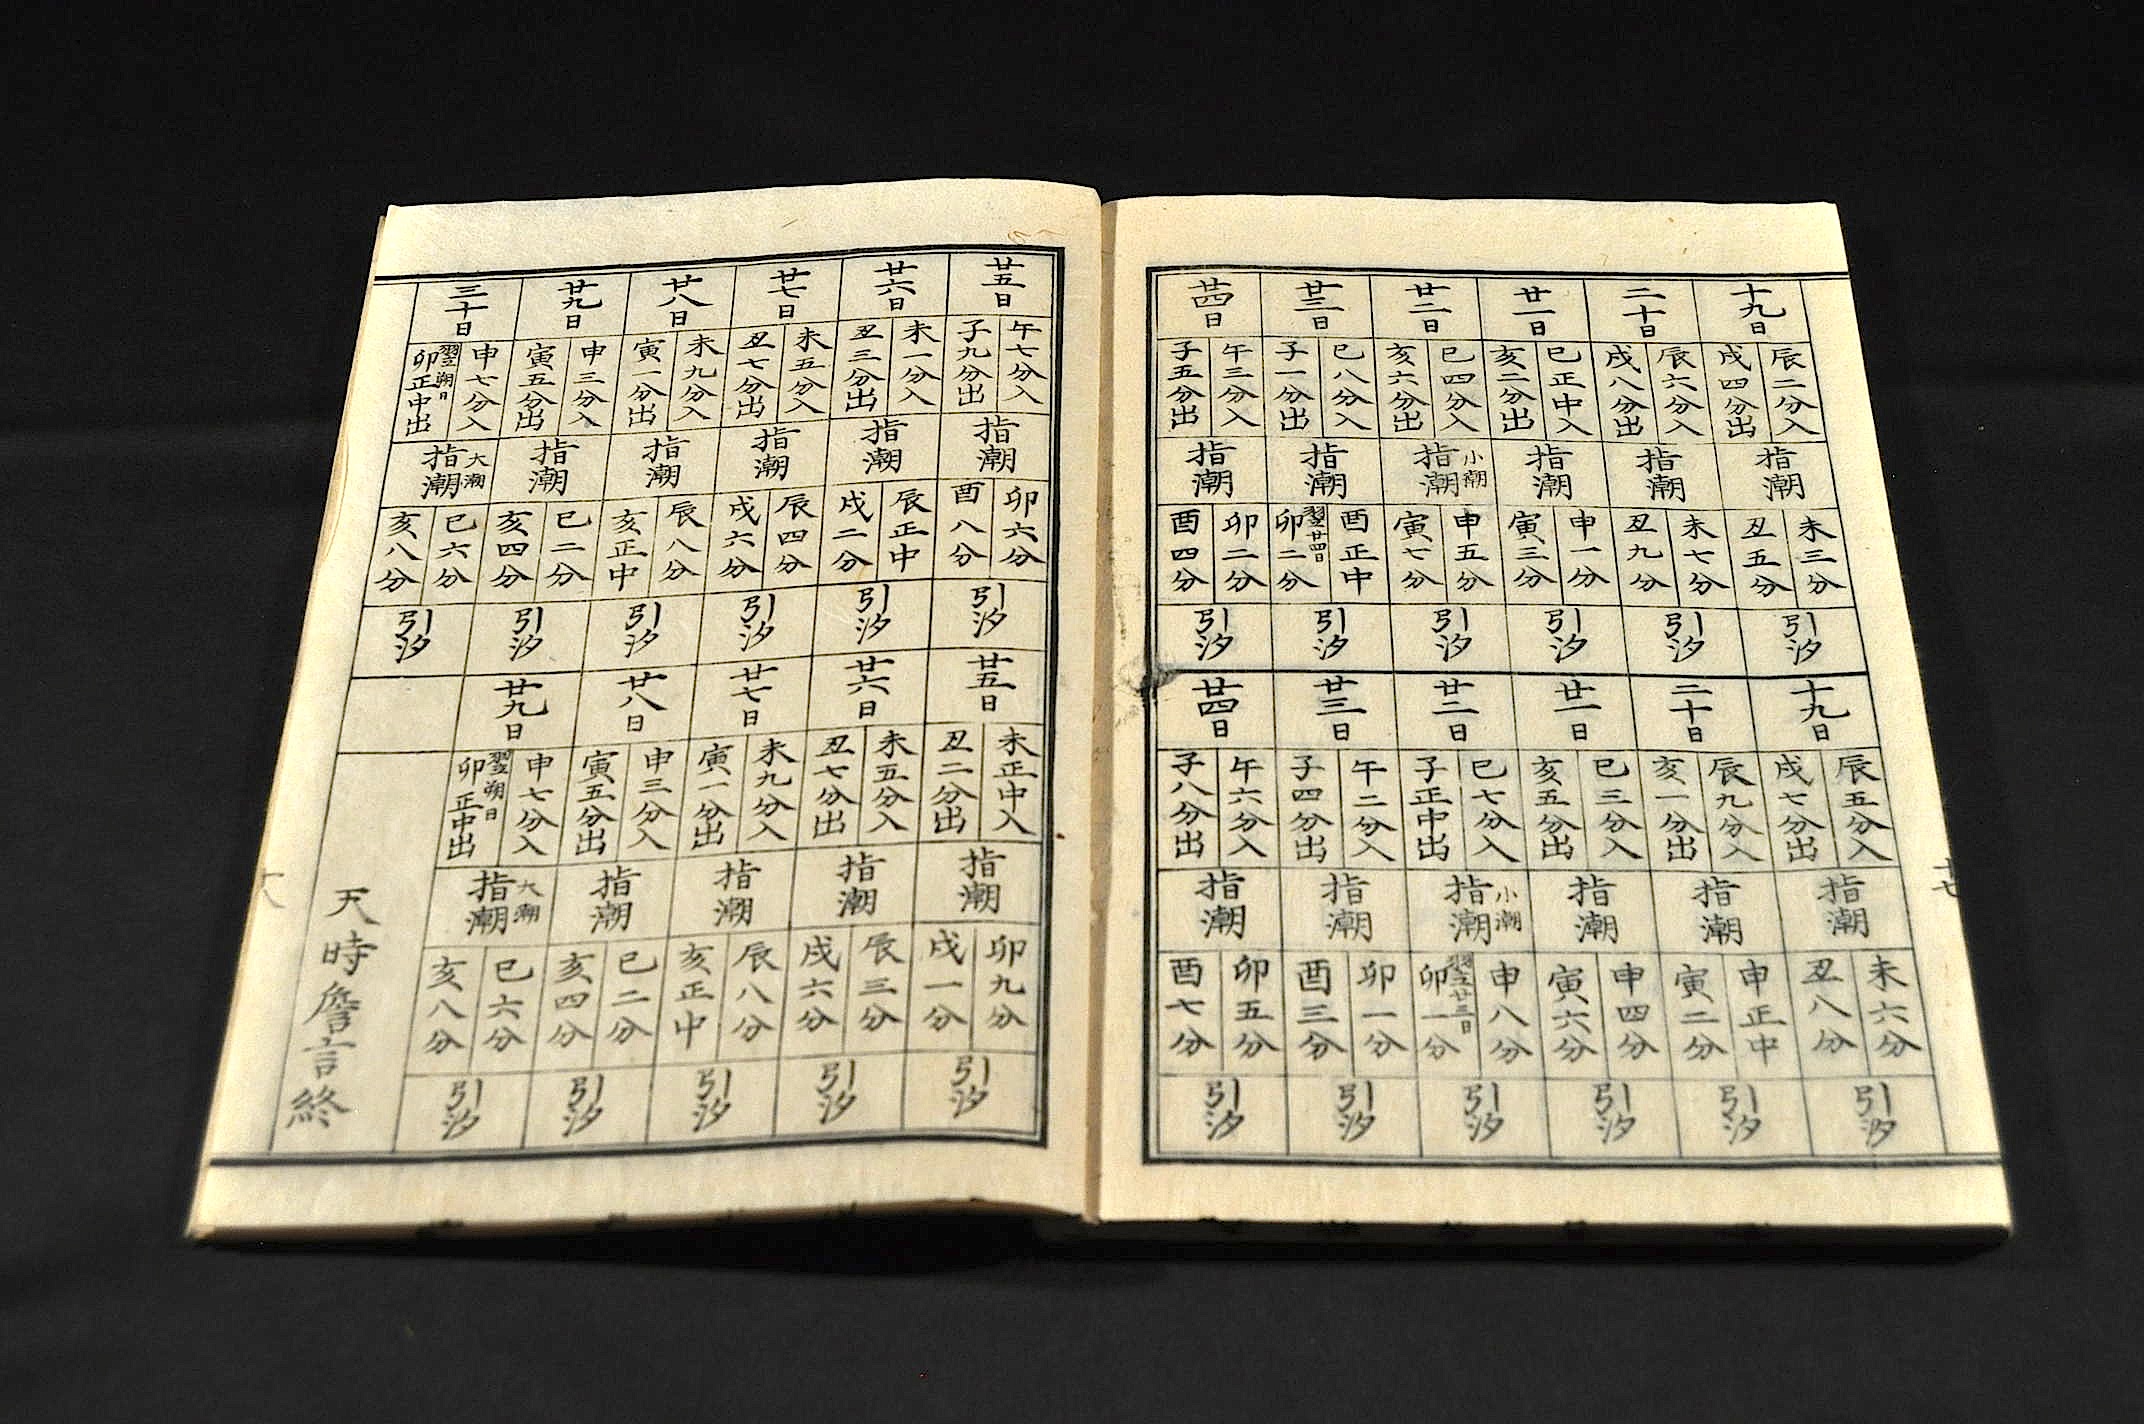 十九日
辰二分入
戌四分出
指潮
未三分
丑五分
引汐
二十日
辰六分入
戌八分出
指潮
未七分
丑九分
引汐
廿一日
巳正中入
亥二分出
指潮
申一分
寅三分
引汐
廿二日
巳四分入
亥六分出
小潮
指潮
申五分
寅七分
引汐
廿三日
巳八分入
子一分出
指潮
酉正中
翌廿四日
卯二分
引汐
廿四日
午三分入
子五分出
指潮
卯二分
酉四分
引汐
十九日
辰五分入
戌七分出
指潮
未六分
丑八分
引汐
二十日
辰九分入
亥一分出
指潮
申正中
寅二分
引汐
廿一日
巳三分入
亥五分出
指潮
申四分
寅六分
引汐
廿二日
巳七分入
子正中出
小潮
指潮
申八分
翌廿三日
卯一分
引汐
廿三日
午二分入
子四分出
指潮
卯一分
酉三分
引汐
廿四日
午六分入
子八分出
指潮
卯五分
酉七分
引汐
廿五日
午七分入
子九分出
指潮
卯六分
酉八分
引汐
廿六日
未一分入
丑三分出
指潮
辰正中
戌二分
引汐
廿七日
未五分入
丑七分出
指潮
辰四分
戌六分
引汐
廿八日
未九分入
寅一分出
指潮
辰八分
亥正中
引汐
廿九日
申三分入
寅五分出
指潮
巳二分
亥四分
引汐
三十日
申七分入
翌朔日
卯正中出
大潮
指潮
巳六分
亥八分
引汐
廿五日
未正中入
丑二分出
指潮
卯九分
戌一分
引汐
廿六日
未五分入
丑七分出
指潮
辰三分
戌六分
引汐
廿七日
未九分入
寅一分出
指潮
辰八分
亥正中
引汐
廿八日
申三分入
寅五分出
指潮
巳二分
亥四分
引汐
廿九日
申七分入
翌朔日
卯正中出
大潮
指潮
巳六分
亥八分
引汐
天時詹言終